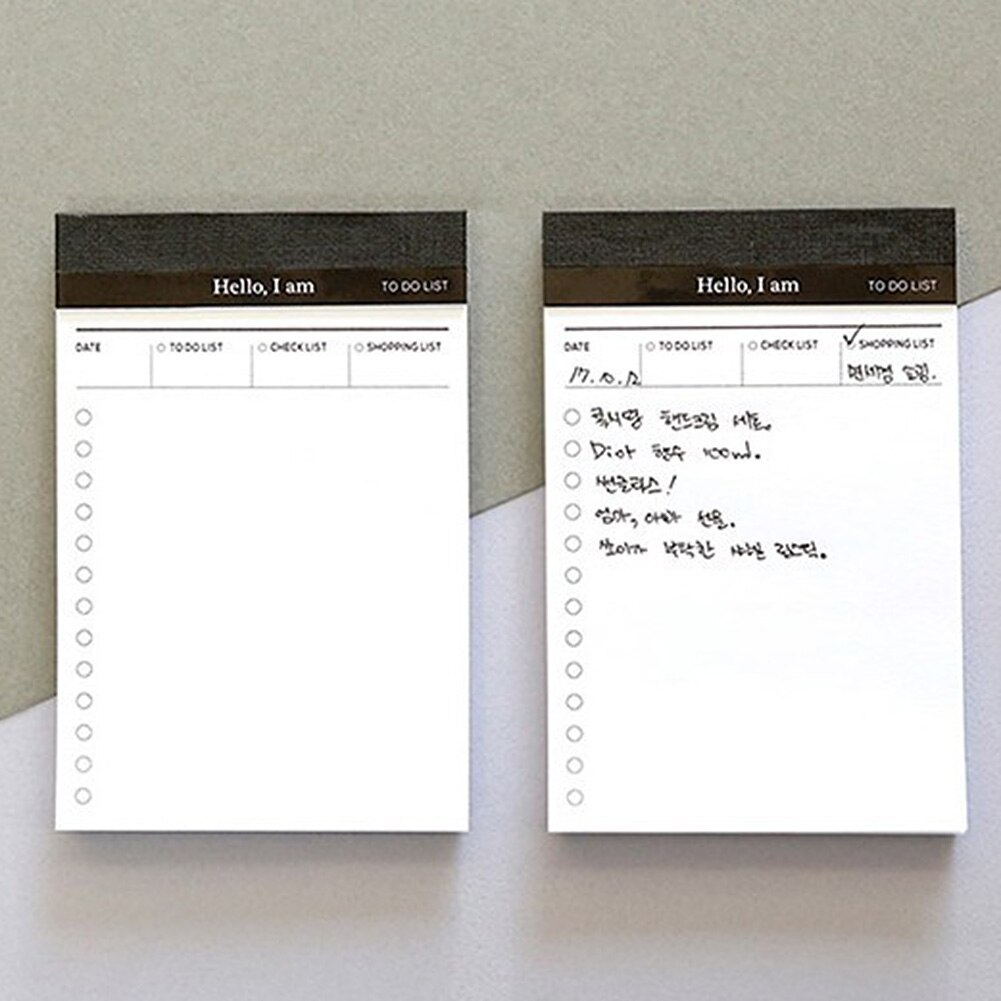 Hello, I am TO DO LIST
DATE TO DO LIST CHECK LIST SHOPPING LIST
Hello, I am TO DO LIST
DATE TO DO LIST CHECK LIST SHOPPING LIST
17. 10. 12 면세점 쇼핑.
록시땅 핸드크림 세트.
Dior 향수 100ml.
썬글라스!
엄마, 아빠 선물.
부탁한 샤넬 립스틱.